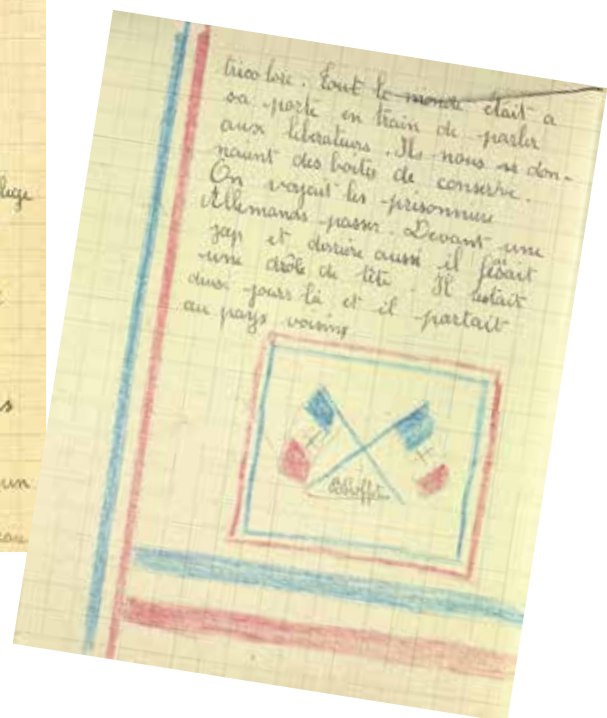 luge
s
un
eau
tricolore. Tout le monde était a
sa porte en train de parler
aux libérateurs. Ils nous don-
naient des boites de conserve.
On voyait les prisonniers
Allemands passer. Devant une
jap et derrière aussi il fesait
une drôle de tête. Il restait
deux jours là et il partait
au pays voisins